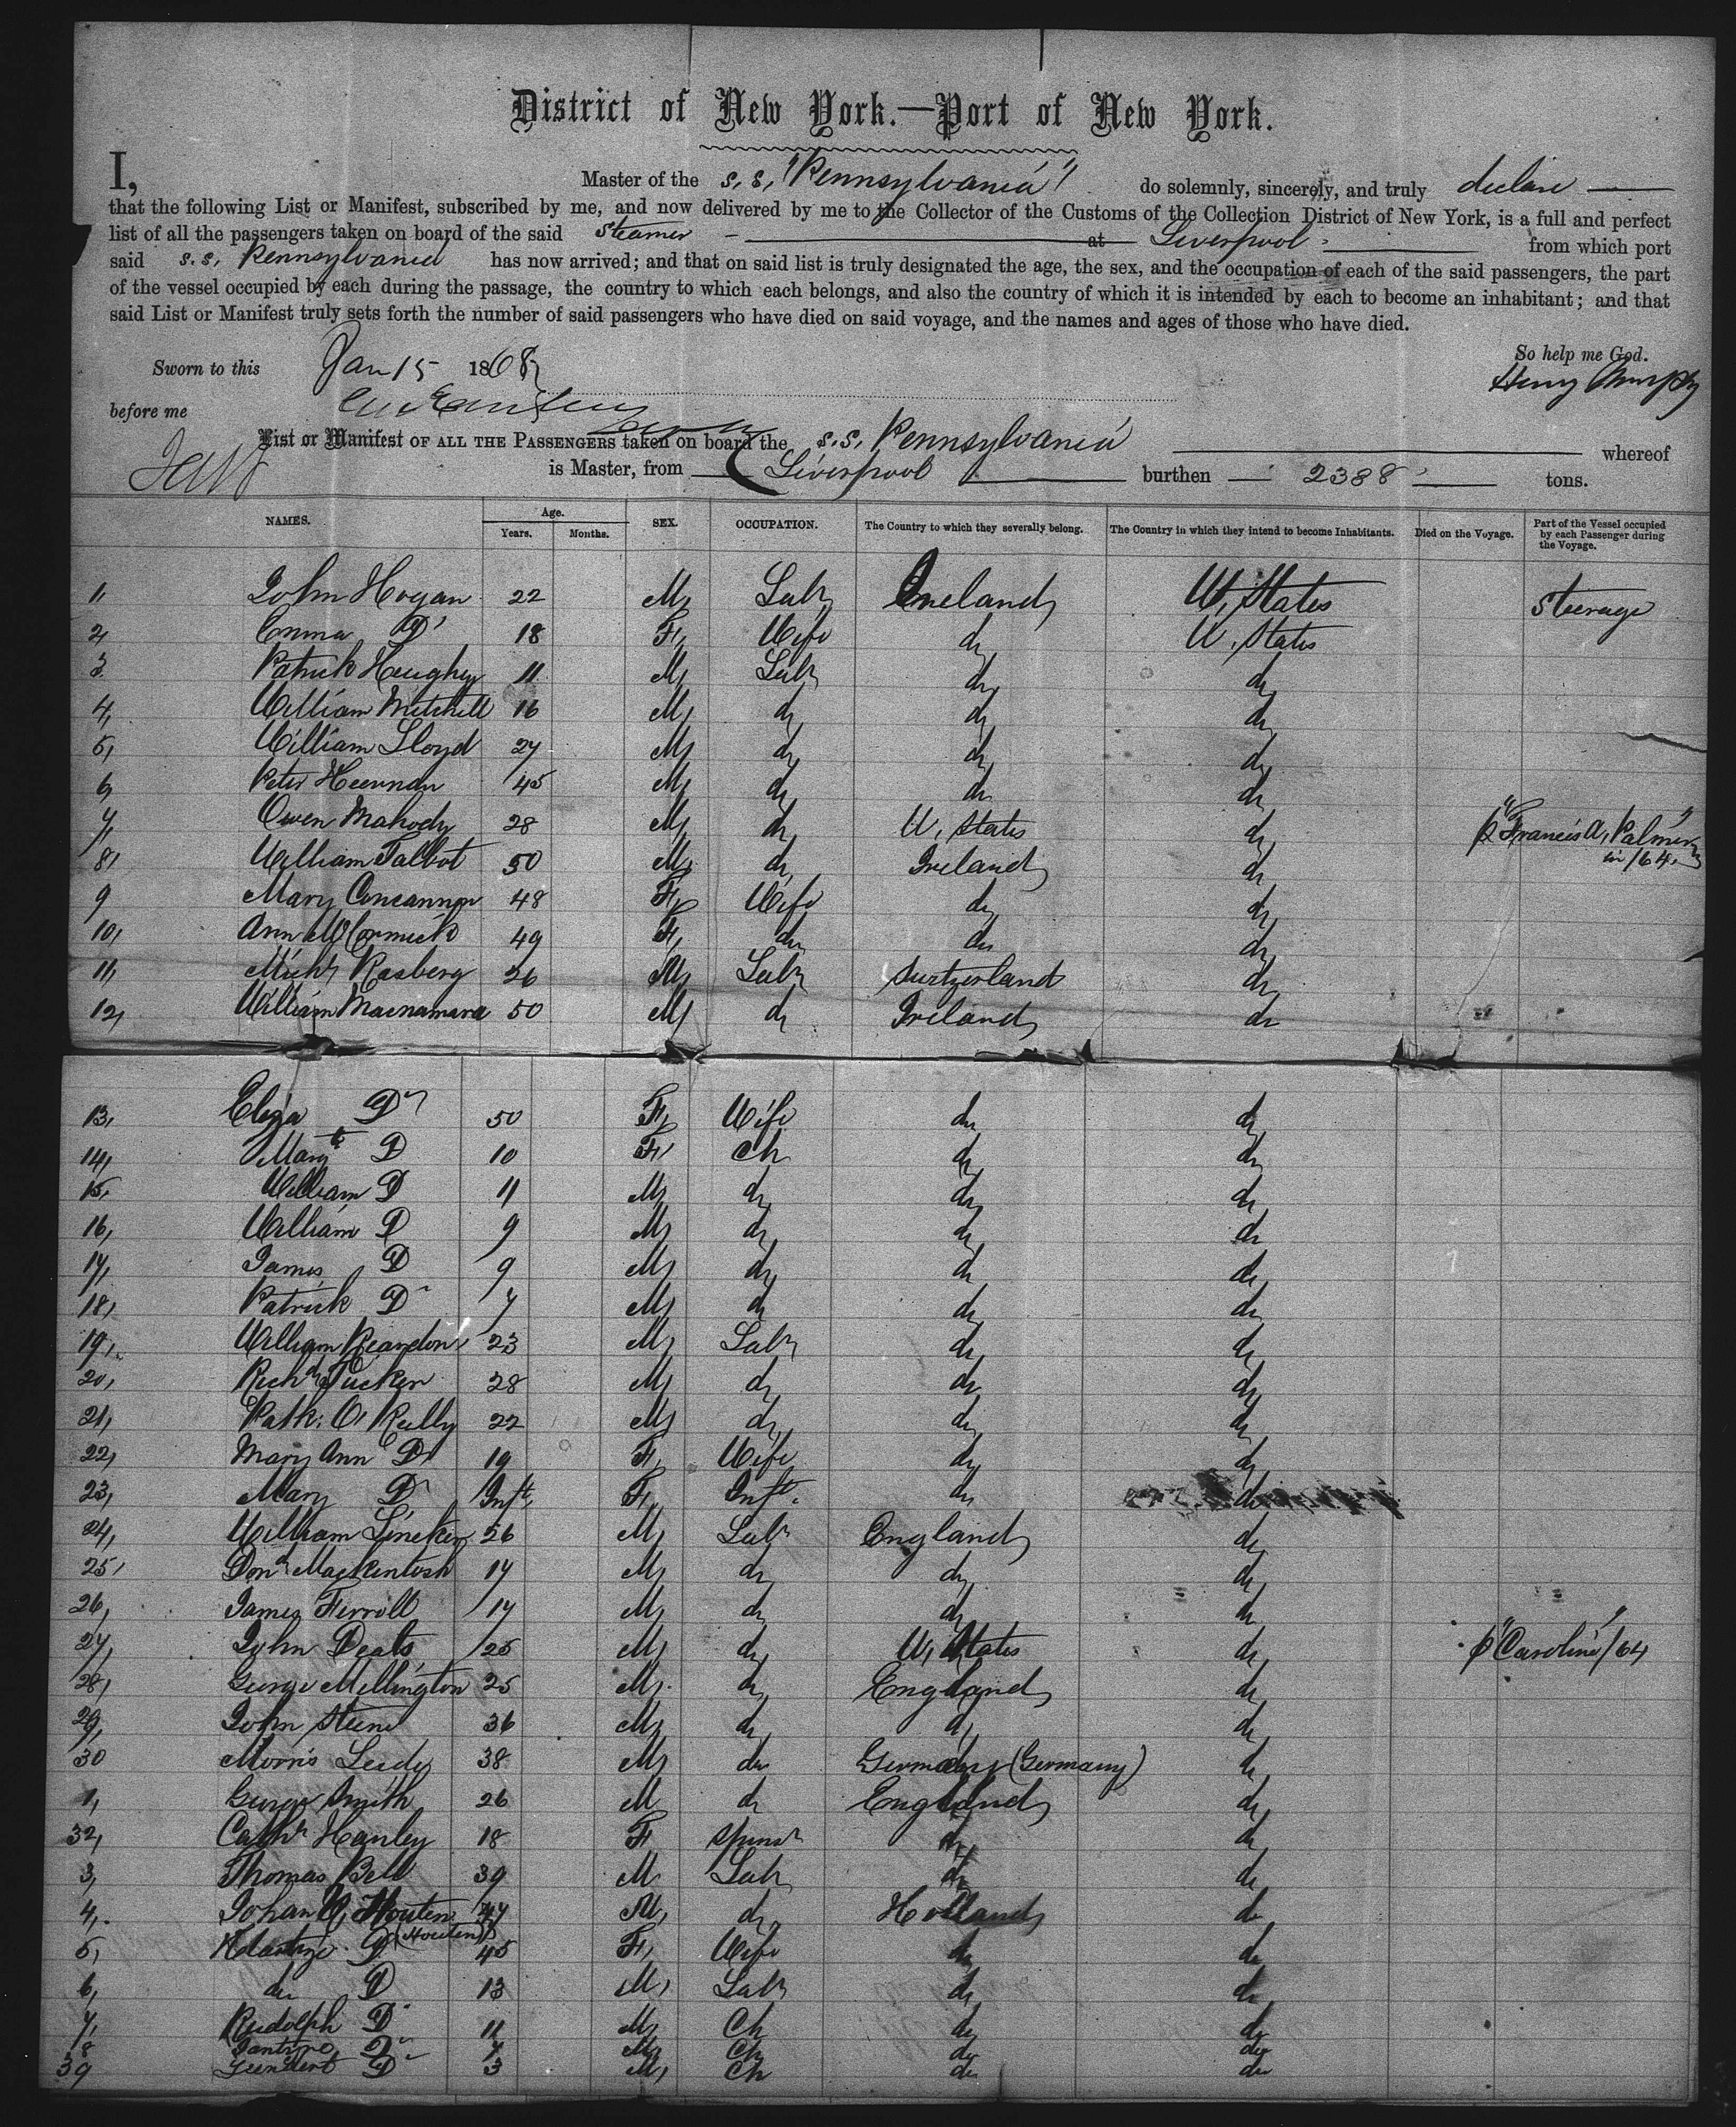 District of New York.—Port of New York.
I, Master of the s.s. "Pennsylvania" do solemnly, sincerely, and truly declare
that the following List or Manifest, subscribed by me, and now delivered by me to the Collector of the Customs of the Collection District of New York, is a full and perfect
list of all the passengers taken on board of the said Steamer at Liverpool from which port
said s.s. Pennsylvania has now arrived; and that on said list is truly designated the age, the sex, and the occupation of each of the said passengers, the part
of the vessel occupied by each during the passage, the country to which each belongs, and also the country of which it is intended by each to become an inhabitant; and that
said List or Manifest truly sets forth the number of said passengers who have died on said voyage, and the names and ages of those who have died.
So help me God.
Sworn to this Jan 15 1868
Henry Murphy
before me
List or Manifest OF ALL THE PASSENGERS taken on board the s.s. Pennsylvania whereof
is Master, from Liverpool burthen 2388 tons.
NAMES. Age. Years. Months. SEX. OCCUPATION. The Country to which they severally belong. The Country in which they intend to become Inhabitants. Died on the Voyage. Part of the Vessel occupied by each Passenger during the Voyage.
1, John Hogan 22 M, Labr Ireland U, States Steerage
2, Emma Do 18 F, Wife do U, States
3 Patrick Haughey 11 M, Labr do do
4, William Mitchell 16 M, do do do
5, William Lloyd 27 M, do do do
6, Peter Heernan 45 M, do do do
7, Owen Mahody 28 M, do U, States do p "Francis A, Palmer" in /64
8, William Talbot 50 M, do Ireland do
9 Mary Concannon 48 F, Wife do do
10, Ann McCormick 49 F, do do do
11, Michl Rasberg 26 M, Labr Switzerland do
12, William Macnamara 50 M, do Ireland do
13, Eliza Do 50 F, Wife do do
14, Mary D 10 F, Ch do do
15, William D 11 M, do do do
16, William D 9 M, do do do
17, James D 9 M, do do do
18, Patrick Do 7 M, do do do
19, William Reardon 23 M, Labr do do
20, Richd Tucker 28 M, do do do
21, Patk: O'Reilly 22 M, do do do
22, Mary Ann Do 19 F, Wife do do
23, Mary Do Inft, F, Inft. do do
24, William Lineker 26 M, Labr England do
25, Dond Mackentosh 17 M, do do do
26, James Ferroll 17 M, do do do
27, John Deats 25 M, do U, States do p "Caroline" /64
28, George Mellington 25 M, do England do
29, John Steene 36 M, do do do
30 Morris Leidy 38 M, do (Germany) do
1, George Smith 26 M do England do
32, Cathn Hanley 18 F Spinsr do do
3, Thomas Bell 39 M Labr do do
4, Johan Houten 47 M, do Holland do
5, D (Houten) 45 F, Wife do do
6, do D 13 M, Labr do do
7, Rudolph Do 11 M, Ch do do
8 Do 7 M, Ch do do
39 Leendert D 3 M, Ch do do